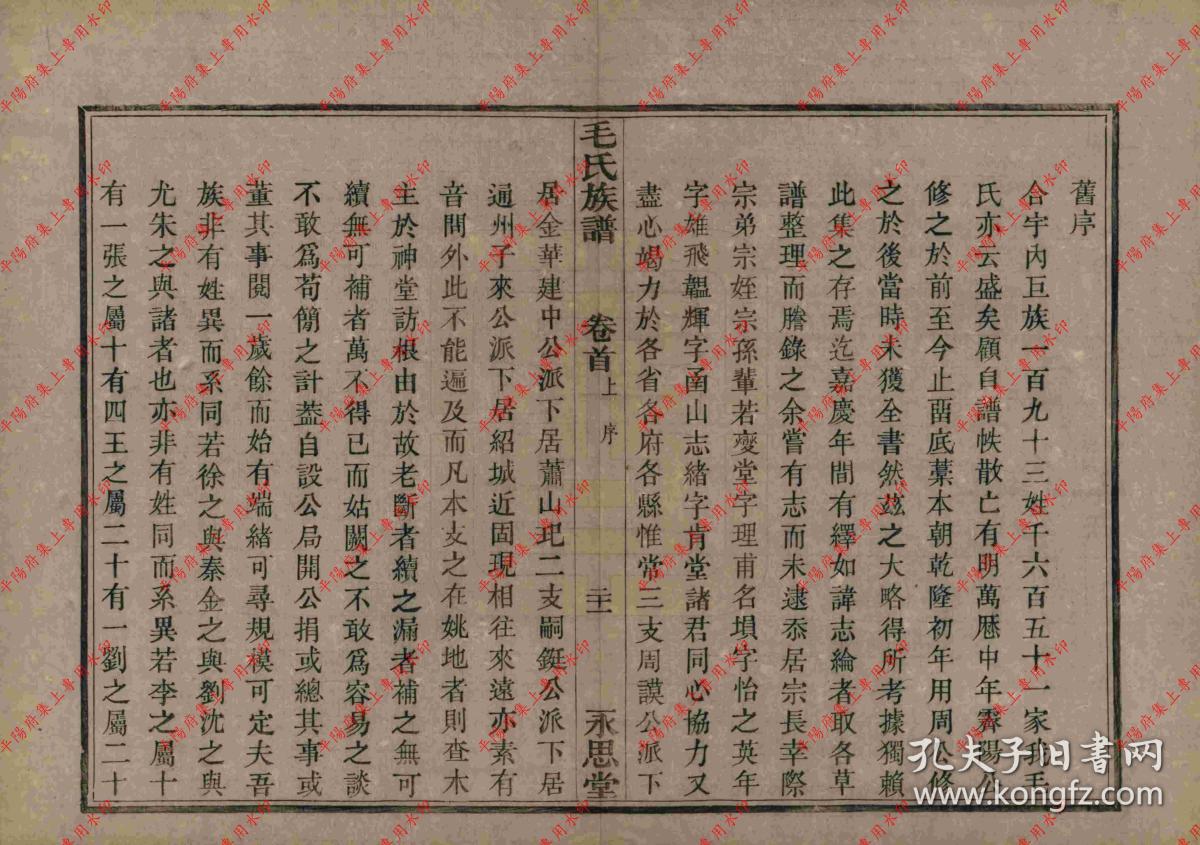 舊序
合宇內巨族一百九十三姓千六百五十一家我毛
氏亦云盛矣顧自譜帙散亡有明萬曆中年霽陽公
修之於前至今止畱底藁本朝乾隆初年用周公修
之於後當時未獲全書然茲之大略得所考據獨賴
此集之存焉迄嘉慶年間有繹如諱志綸者取各草
譜整理而謄錄之余嘗有志而未逮忝居宗長幸際
宗弟宗姪宗孫輩若燮堂字理甫名塤字怡之英年
字雄飛韞輝字函山志緒字肯堂諸君同心協力又
盡心竭力於各省各府各縣惟常三支周謨公派下
毛氏族譜 卷首 上 序 二十一 永思堂
居金華建中公派下居蕭山圯二支嗣鋌公派下居
通州子來公派下居紹城近固現相往來遠亦素有
音問外此不能遍及而凡本支之在姚地者則查木
主於神堂訪根由於故老斷者續之漏者補之無可
續無可補者萬不得已而姑闕之不敢爲容易之談
不敢爲苟簡之計葢自設公局開公捐或總其事或
董其事閱一歲餘而始有端緒可尋規模可定夫吾
族非有姓異而系同若徐之與秦金之與劉沈之與
尤朱之與諸者也亦非有姓同而系異若李之屬十
有一張之屬十有四王之屬二十有一劉之屬二十
孔夫子旧书网
www.kongfz.com
平陽府集上專用水印